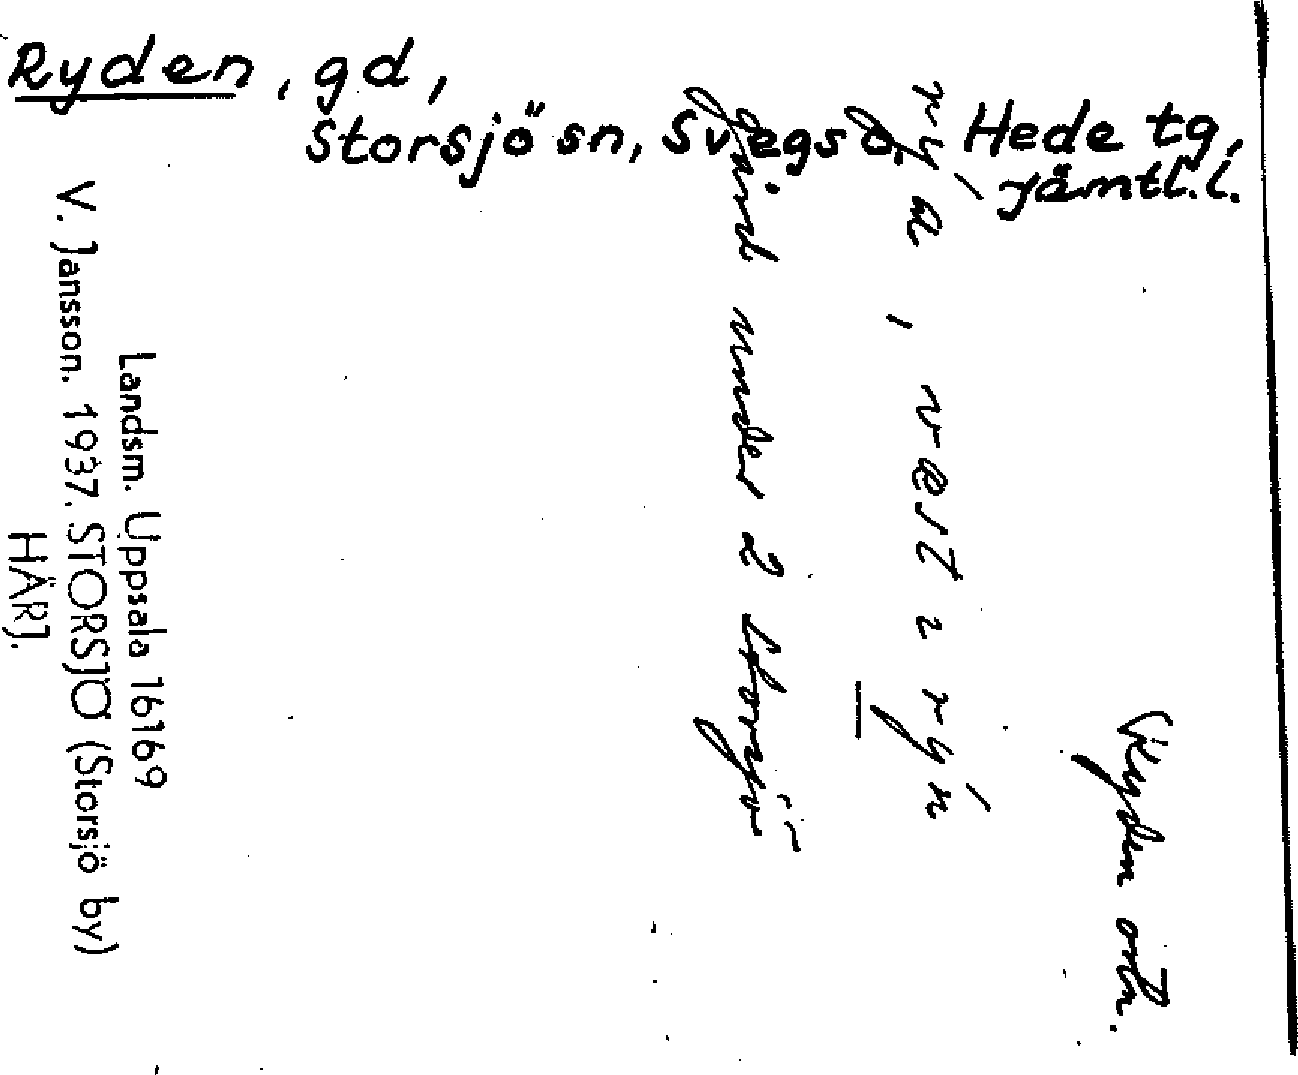 Ryden, gd,
Storsjö sn, Svegs d. Hede tg,
Jämtl. l.
Ryden ortn.
rýa, vest i rýn
gård under 2 Storsjö
Landsm. Uppsala 16169
V. Jansson. 1937. STORSJÖ (Storsjö by)
HÄRJ.